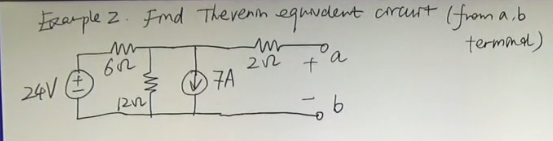 Example 2. Find Thevenin equivalent circuit (from a,b
terminal)
6Ω
2Ω
+ a
24V
+
-
12Ω
7A
- b